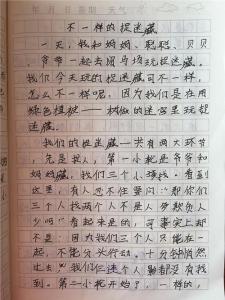 年 月 日 星期 天气
不一样的捉迷藏
一天，我和妈妈、聪聪、贝贝、
一起去跑马场玩捉迷藏。
我们今天玩的捉迷藏可不一样，
怎么不一样呢？因为我们是在用
绿色植被——树做的迷宫里玩捉
迷藏。
我们的捉迷藏一共有两大环节，
先是找人，第一小耙是爷爷和
妈妈藏，我们三个小孩找。看到
这里，有人忍不住要问："那你们
三个人找两个人不是人多欺负人
少吗？"看起来是的，可事实上却
不是，因为我们三个人只能在一
起，不能分头行动。十分钟悄然
过去，我们仨连个人影都没有找
到。第一小耙开始了，一样的，